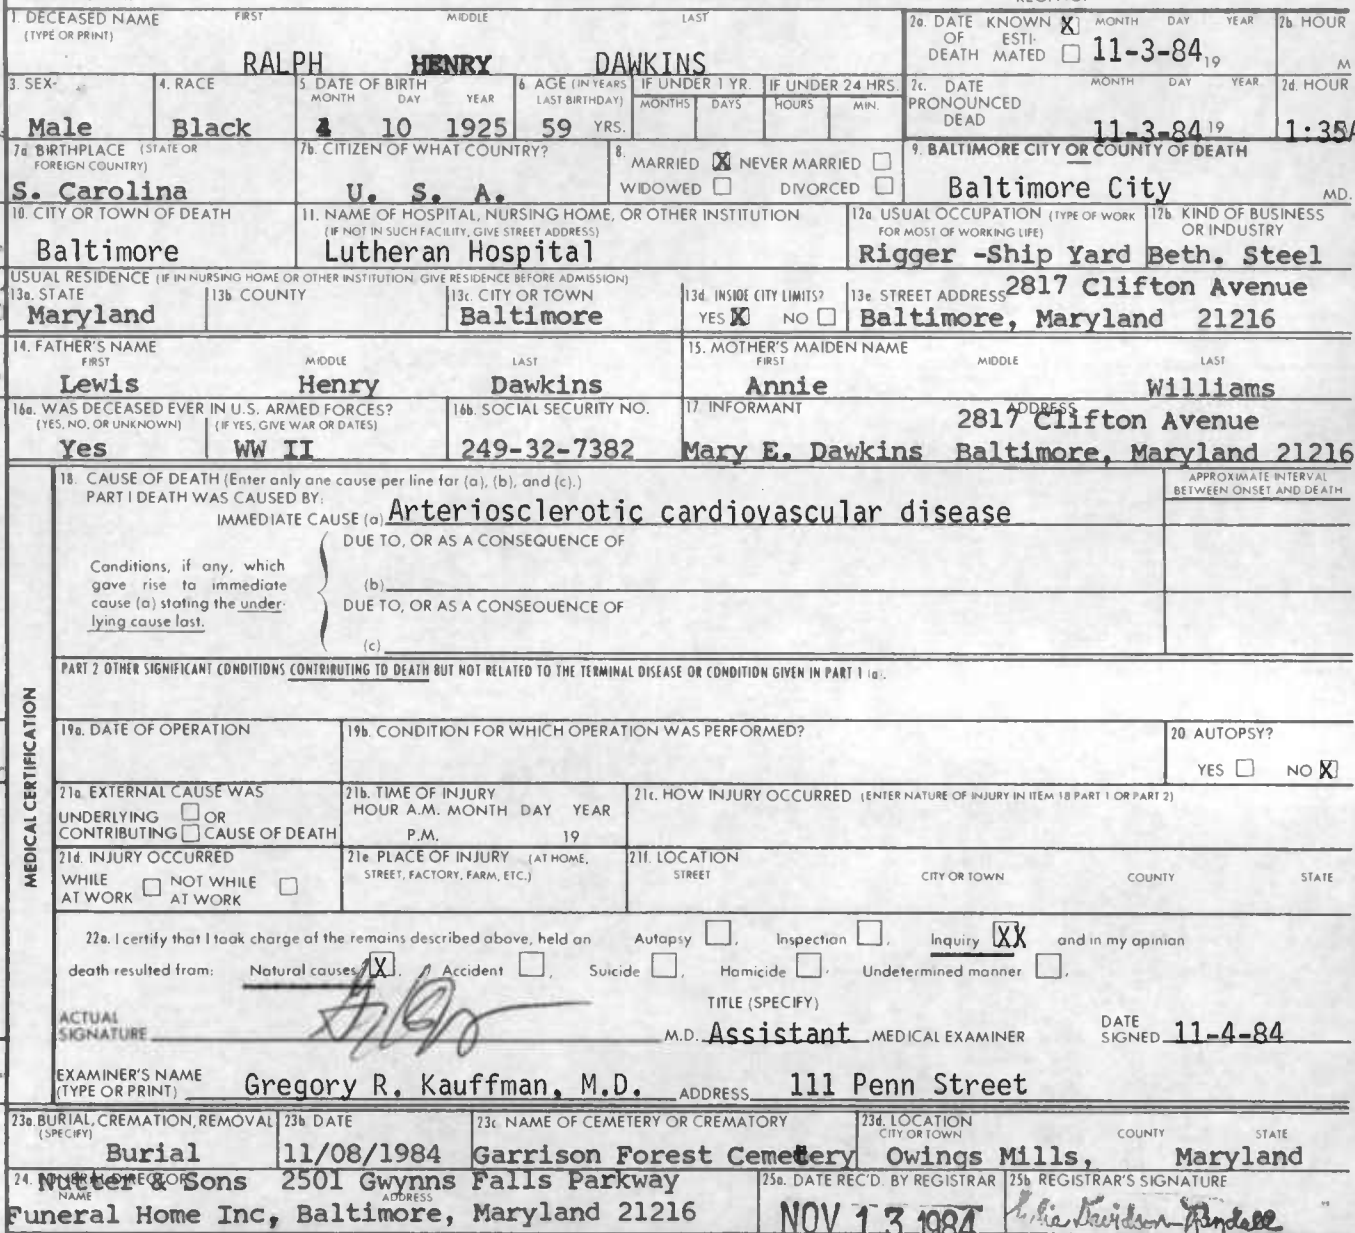 1. DECEASED NAME FIRST MIDDLE LAST
(TYPE OR PRINT)
RALPH HENRY DAWKINS
2a. DATE KNOWN X MONTH DAY YEAR
OF ESTI-
DEATH MATED 11-3-84 19
2b HOUR
M
3. SEX
Male
4. RACE
Black
5 DATE OF BIRTH
MONTH DAY YEAR
10 1925
6 AGE (IN YEARS
LAST BIRTHDAY)
59 YRS.
IF UNDER 1 YR. IF UNDER 24 HRS.
MONTHS DAYS HOURS MIN.
2c. DATE MONTH DAY YEAR
PRONOUNCED
DEAD
11-3-84 19
2d. HOUR
1:35A
7a BIRTHPLACE (STATE OR
FOREIGN COUNTRY)
S. Carolina
7b. CITIZEN OF WHAT COUNTRY?
U. S. A.
8. MARRIED X NEVER MARRIED
WIDOWED DIVORCED
9. BALTIMORE CITY OR COUNTY OF DEATH
Baltimore City MD.
10. CITY OR TOWN OF DEATH
Baltimore
11. NAME OF HOSPITAL, NURSING HOME, OR OTHER INSTITUTION
(IF NOT IN SUCH FACILITY, GIVE STREET ADDRESS)
Lutheran Hospital
12a USUAL OCCUPATION (TYPE OF WORK
FOR MOST OF WORKING LIFE)
Rigger -Ship Yard
12b KIND OF BUSINESS
OR INDUSTRY
Beth. Steel
USUAL RESIDENCE (IF IN NURSING HOME OR OTHER INSTITUTION GIVE RESIDENCE BEFORE ADMISSION)
13a. STATE
Maryland
13b COUNTY
13c. CITY OR TOWN
Baltimore
13d INSIDE CITY LIMITS?
YES X NO
13e STREET ADDRESS 2817 Clifton Avenue
Baltimore, Maryland 21216
14. FATHER'S NAME
FIRST MIDDLE LAST
Lewis Henry Dawkins
15. MOTHER'S MAIDEN NAME
FIRST MIDDLE LAST
Annie Williams
16a. WAS DECEASED EVER IN U.S. ARMED FORCES?
(YES, NO, OR UNKNOWN) (IF YES, GIVE WAR OR DATES)
Yes WW II
16b. SOCIAL SECURITY NO.
249-32-7382
17 INFORMANT ADDRESS
2817 Clifton Avenue
Mary E. Dawkins Baltimore, Maryland 21216
MEDICAL CERTIFICATION
18. CAUSE OF DEATH (Enter only one cause per line for (a), (b), and (c).)
PART I DEATH WAS CAUSED BY:
IMMEDIATE CAUSE (a) Arteriosclerotic cardiovascular disease
APPROXIMATE INTERVAL
BETWEEN ONSET AND DEATH
DUE TO, OR AS A CONSEQUENCE OF
Conditions, if any, which
gave rise to immediate
cause (a) stating the under-
lying cause last.
(b)
DUE TO, OR AS A CONSEQUENCE OF
(c)
PART 2 OTHER SIGNIFICANT CONDITIONS CONTRIBUTING TO DEATH BUT NOT RELATED TO THE TERMINAL DISEASE OR CONDITION GIVEN IN PART 1 (a).
19a. DATE OF OPERATION
19b. CONDITION FOR WHICH OPERATION WAS PERFORMED?
20 AUTOPSY?
YES NO X
21a EXTERNAL CAUSE WAS
UNDERLYING OR
CONTRIBUTING CAUSE OF DEATH
21b. TIME OF INJURY
HOUR A.M. MONTH DAY YEAR
P.M. 19
21c. HOW INJURY OCCURRED (ENTER NATURE OF INJURY IN ITEM 18 PART 1 OR PART 2)
21d. INJURY OCCURRED
WHILE NOT WHILE
AT WORK AT WORK
21e PLACE OF INJURY (AT HOME,
STREET, FACTORY, FARM, ETC.)
21f. LOCATION
STREET CITY OR TOWN COUNTY STATE
22a. I certify that I took charge of the remains described above, held an Autopsy, Inspection, Inquiry XX and in my opinion
death resulted from: Natural causes X, Accident, Suicide, Homicide, Undetermined manner.
TITLE (SPECIFY)
ACTUAL
SIGNATURE M.D. Assistant MEDICAL EXAMINER
DATE
SIGNED 11-4-84
EXAMINER'S NAME
(TYPE OR PRINT) Gregory R. Kauffman, M.D. ADDRESS 111 Penn Street
23a. BURIAL, CREMATION, REMOVAL
(SPECIFY)
Burial
23b DATE
11/08/1984
23c NAME OF CEMETERY OR CREMATORY
Garrison Forest Cemetery
23d. LOCATION
CITY OR TOWN COUNTY STATE
Owings Mills, Maryland
24. FUNERAL DIRECTOR
NAME ADDRESS
Nutter & Sons 2501 Gwynns Falls Parkway
Funeral Home Inc, Baltimore, Maryland 21216
25a. DATE REC'D. BY REGISTRAR
NOV 13 1984
25b REGISTRAR'S SIGNATURE
Davidson-Randall